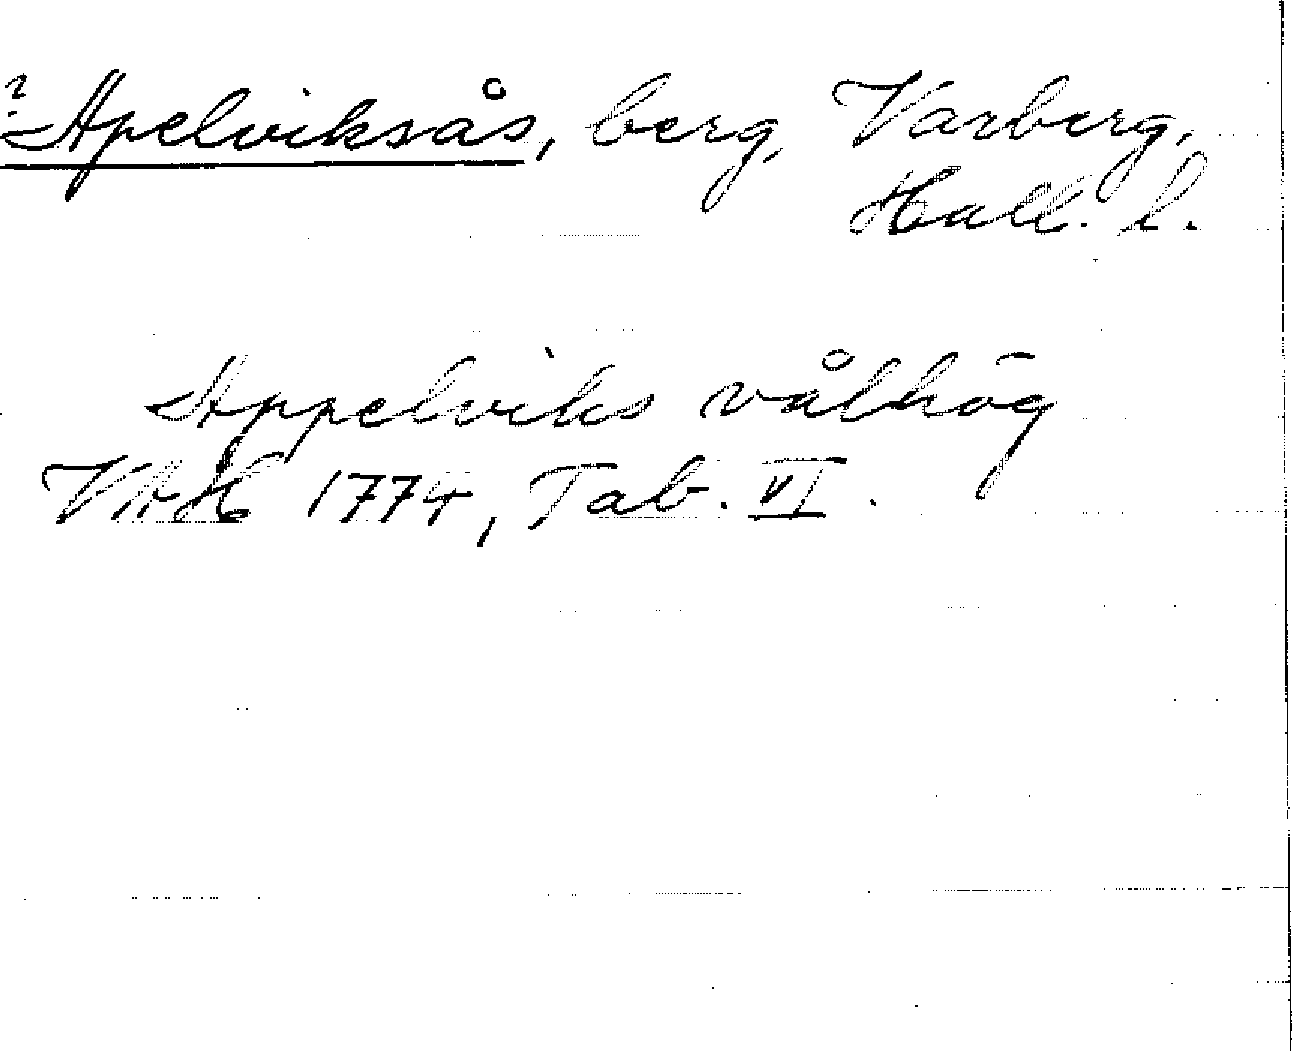 ? Apelviksås, berg, Varberg,
Hall. l.
Appelviks vålhög
1774, Tab. VI.